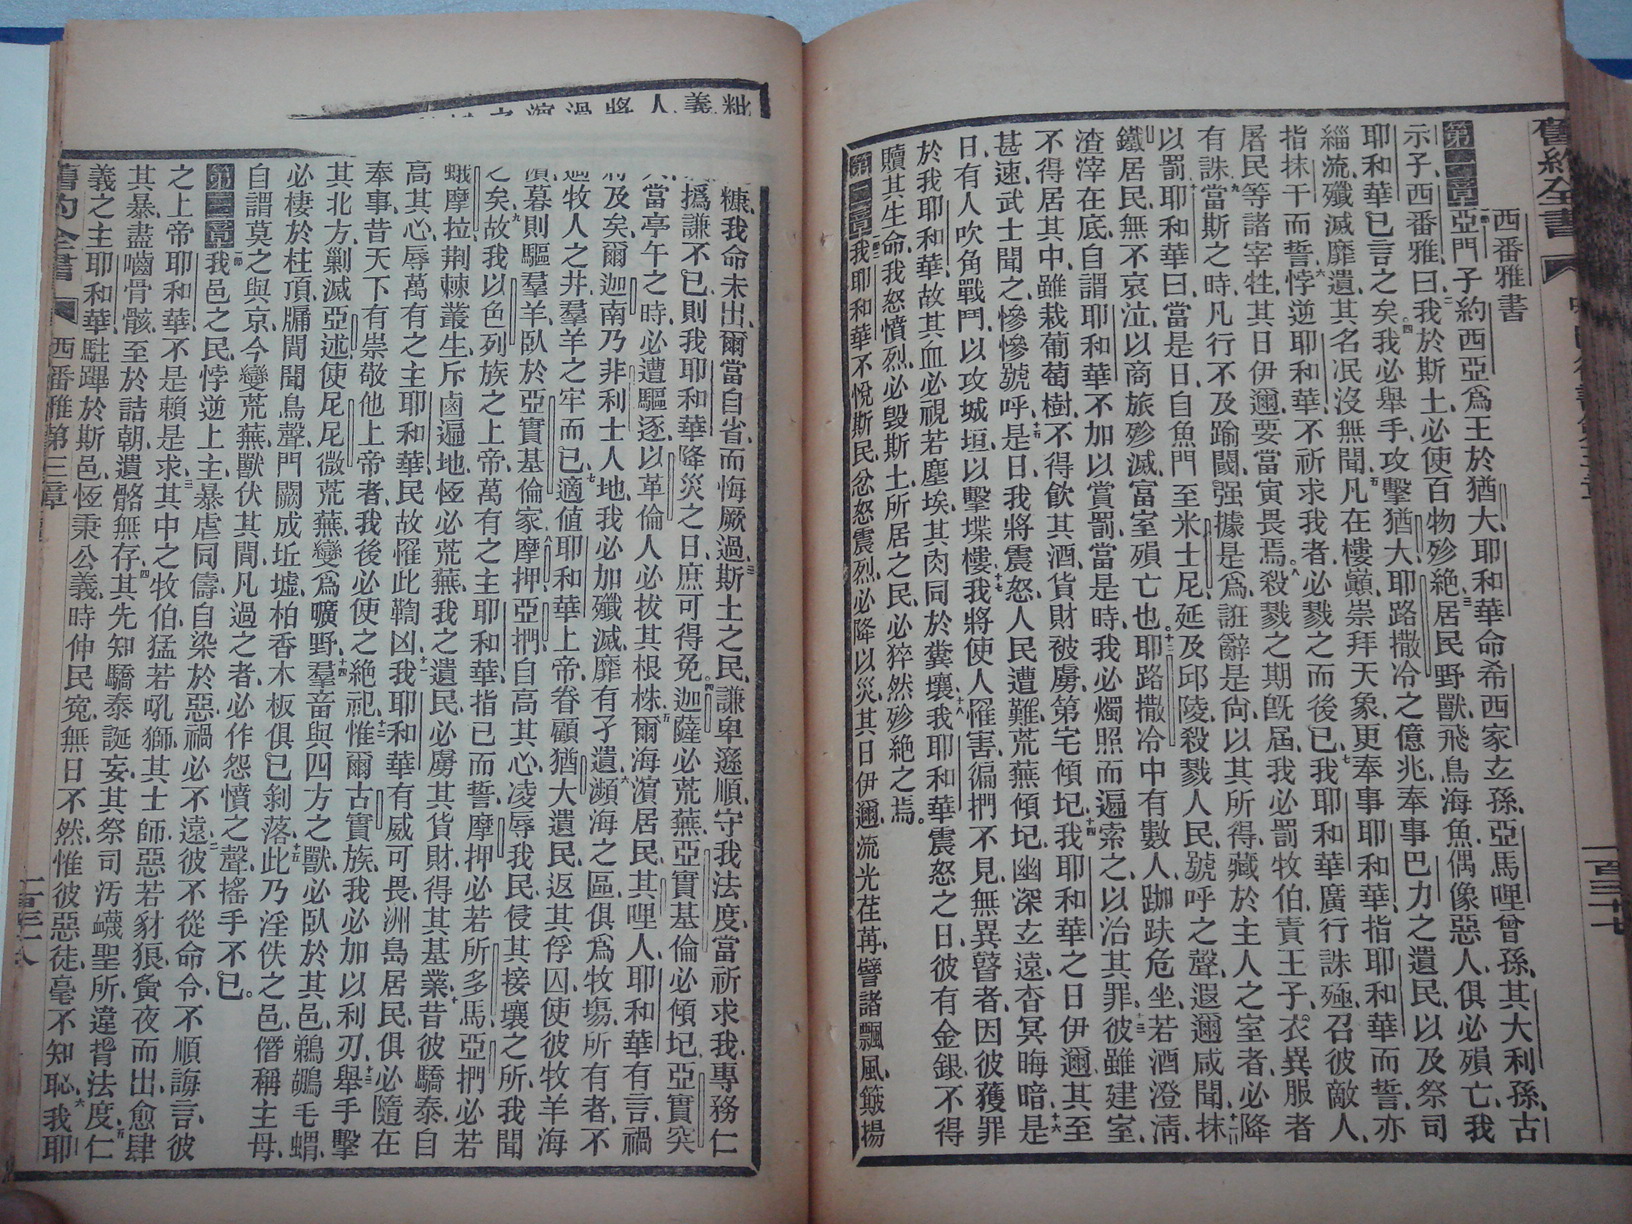 舊約全書
西番雅書
第一章亞門子約西亞爲王於猶大耶和華命希西家玄孫亞馬哩曾孫其大利孫古
示子西番雅曰我於斯土必使百物殄絕居民野獸飛鳥海魚偶像惡人俱必殞亡我
耶和華已言之矣我必舉手攻擊猶大耶路撒冷之億兆奉事巴力之遺民以及祭司
緇流殲滅靡遺其名泯沒無聞凡在樓巔崇拜天象更奉事耶和華指耶和華而誓亦
指抹干而誓悖逆耶和華不祈求我者必戮之而後已我耶和華廣行誅殛召彼敵人
屠民等諸宰牲其日伊邇要當寅畏焉殺戮之期旣屆我必罰牧伯責王子衣異服者
有誅當斯之時凡行不及踰閾强據是爲誑辭是尙以其所得藏於主人之室者必降
以罰耶和華曰當是日自魚門至米士尼延及邱陵殺戮人民號呼之聲遐邇咸聞抹
鐵居民無不哀泣以商旅殄滅富室殞亡也耶路撒冷中有數人跏趺危坐若酒澄淸
渣滓在底自謂耶和華不加以賞罰當是時我必燭照而遍索之以治其罪彼雖建室
不得居其中雖栽葡萄樹不得飮其酒貨財被虜第宅傾圮我耶和華之日伊邇其至
甚速武士聞之慘慘號呼是日我將震怒人民遭難荒蕪傾圮幽深玄遠杳冥晦暗是
日有人吹角戰鬥以攻城垣以擊堞樓我將使人罹害徧捫不見無異瞽者因彼獲罪
於我耶和華故其血必視若塵埃其肉同於糞壤我耶和華震怒之日彼有金銀不得
贖其生命我怒憤烈必毀斯土所居之民必猝然殄絕之焉
第二章我耶和華不悅斯民忿怒震烈必降以災其日伊邇流光荏苒譬諸飄風簸揚
一百三十七
粃
義
人
將
過
濱
之
糠我命未出爾當自省而悔厥過斯土之民謙卑遜順守我法度當祈求我專務仁
撝謙不已則我耶和華降災之日庶可得免迦薩必荒蕪亞實基倫必傾圮亞實突
當亭午之時必遭驅逐以革倫人必拔其根株爾海濱居民其哩人耶和華有言禍
及矣爾迦南乃非利士人地我必加殲滅靡有孑遺瀕海之區俱爲牧場所有者不
過牧人之井羣羊之牢而已適値耶和華上帝眷顧猶大遺民返其俘囚使彼牧羊海
暮則驅羣羊臥於亞實基倫家摩押亞捫自高其心凌辱我民侵其接壤之所我聞
之矣故我以色列族之上帝萬有之主耶和華指己而誓摩押必若所多馬亞捫必若
蛾摩拉荆棘叢生斥鹵遍地恆必荒蕪我之遺民必虜其貨財得其基業昔彼驕泰自
高其心辱萬有之主耶和華民故罹此鞫凶我耶和華有威可畏洲島居民俱必隨在
奉事昔天下有崇敬他上帝者我後必使之絕祀惟爾古實族我必加以利刃舉手擊
其北方剿滅亞述使尼尼微荒蕪變爲曠野羣畜與四方之獸必臥於其邑鵜鶘毛蝟
必棲於柱頂牖間聞鳥聲門闕成坵墟柏香木板俱已剝落此乃淫佚之邑僭稱主母
自謂莫之與京今變荒蕪獸伏其間凡過之者必作怨憤之聲搖手不已
第三章我邑之民悖逆上主暴虐同儔自染於惡禍必不遠彼不從命令不順誨言彼
之上帝耶和華不是賴是求其中之牧伯猛若吼獅其士師惡若豺狼夤夜而出愈肆
其暴盡嚙骨骸至於詰朝遺骼無存其先知驕泰誕妄其祭司汚衊聖所違背法度仁
義之主耶和華駐蹕於斯邑恆秉公義時伸民寃無日不然惟彼惡徒毫不知恥我耶
舊約全書
西番雅第三章